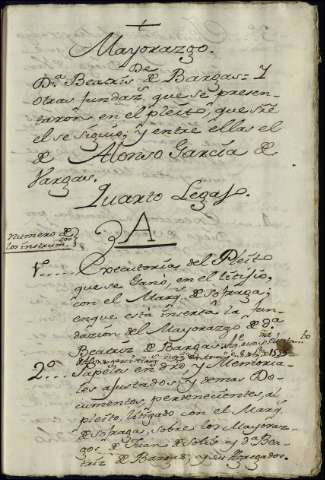 Mayorazgo.
De
D.ª Beatris de Bargas= Y
otras fundaz.s que se presen-
taron en el pleito, que sre
el se siguio; y entre ellas el
de Alonso Garcia de
Vargas.
Quarto Legajo.
A
Numero de
los instrum.tos
1º.... Executorias del Pleito
que se Ganó, en el litisio,
con el Marq.s de Sofraga;
en que está inserta la fun-
dazion del Mayorazgo de D.ª
Beatriz de Bargas
2º... Papeles en dro y Memoria-
les ajustados; y demas Do-
cumentos pertenecientes, al
pleito, litigado con el Marq.s
de Sofraga, sobre los Mayoraz-
gos de Juan de Solis y D.ª Bea-
triz de Bargas, y su Agregados.